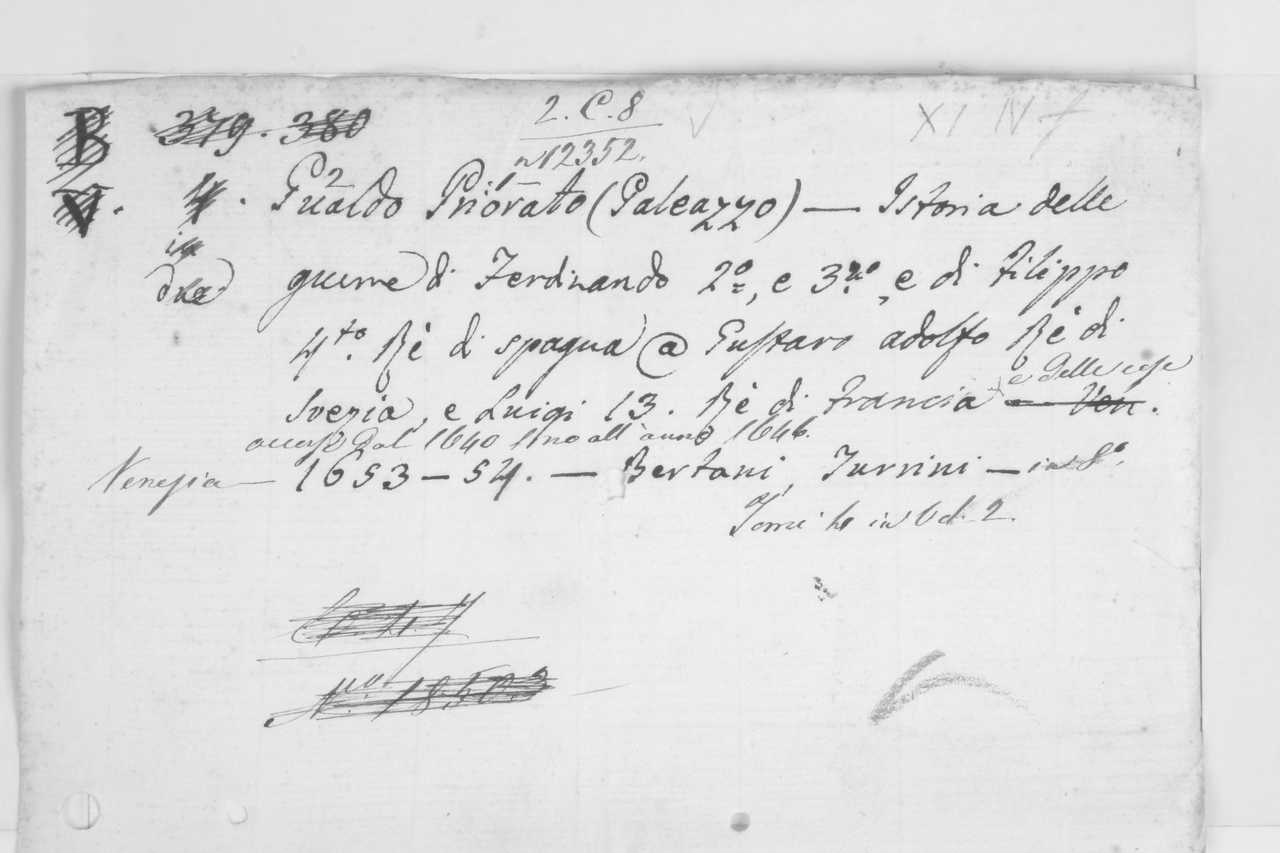 B 379. 380 2. C. 8 XI IV 7
n 12352.
V. 4. Gualdo Priorato (Galeazzo) — Istoria delle
in due guerre di Ferdinando 2º, e 3zo, e di Filippo
4to. Rè di spagna @ Gustavo adolfo Rè di
svezia, e Luigi 13. Rè di francia e delle cose Ven.
occorse dal 1640 fino all'anno 1646.
Venezia — 1653 – 54. — Bertani, Turrini — in 8º.
Tomi 4 in Vol. 2.
Nº. 18502